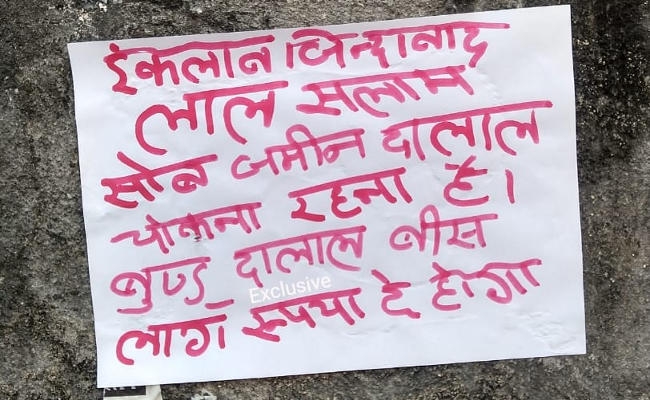 इंकलान जिन्दाबाद
लाल सलाम
सोब जमीन दालाल
चोकना रहना है।
दालाल बीस
लाग रूपया दे होगा
Exclusive